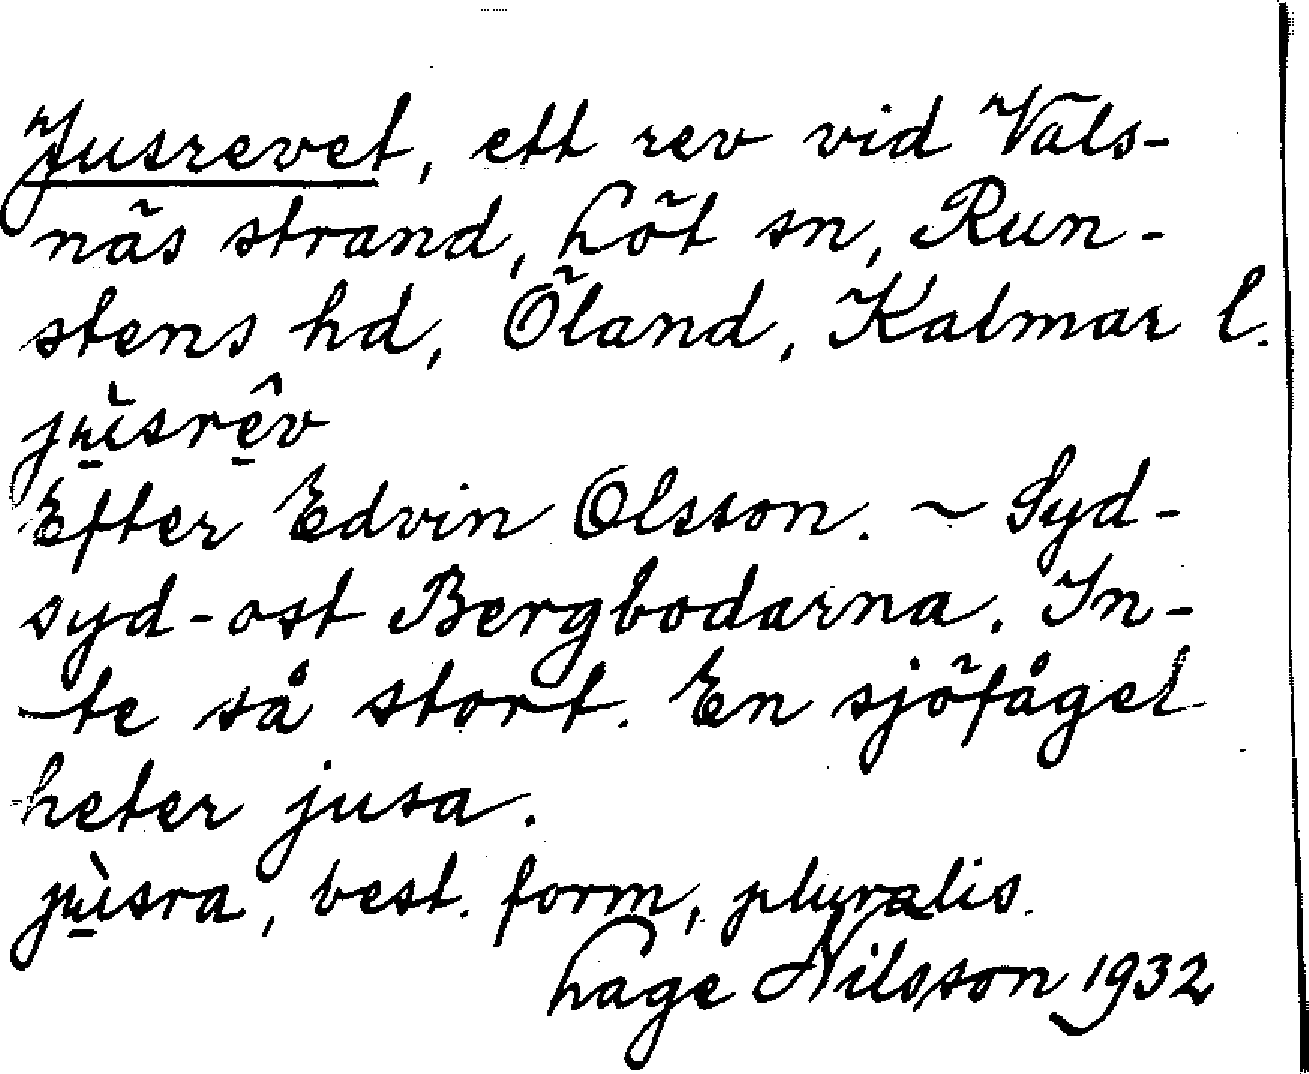 Jusrevet, ett rev vid Väls-
näs strand, Löt sn, Run-
stens hd, Öland, Kalmar l.
jùsrêv
Efter Edvin Olsson. ~ Syd-
syd-ost Bergbodarna. In-
te så stort. En sjöfågel
heter jusa.
jùsra, best. form, pluralis.
Lage Nilsson 1932